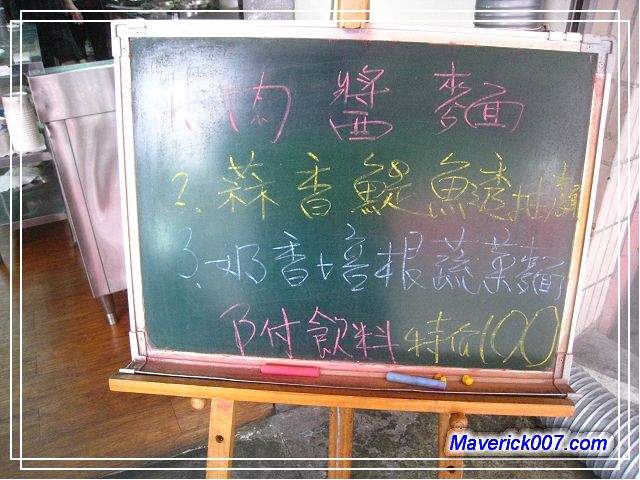 1. 肉醬麵
2. 蒜香鯷魚透抽麵
3. 奶香培根蔬菜麵
附飲料特价100
Maverick007.com